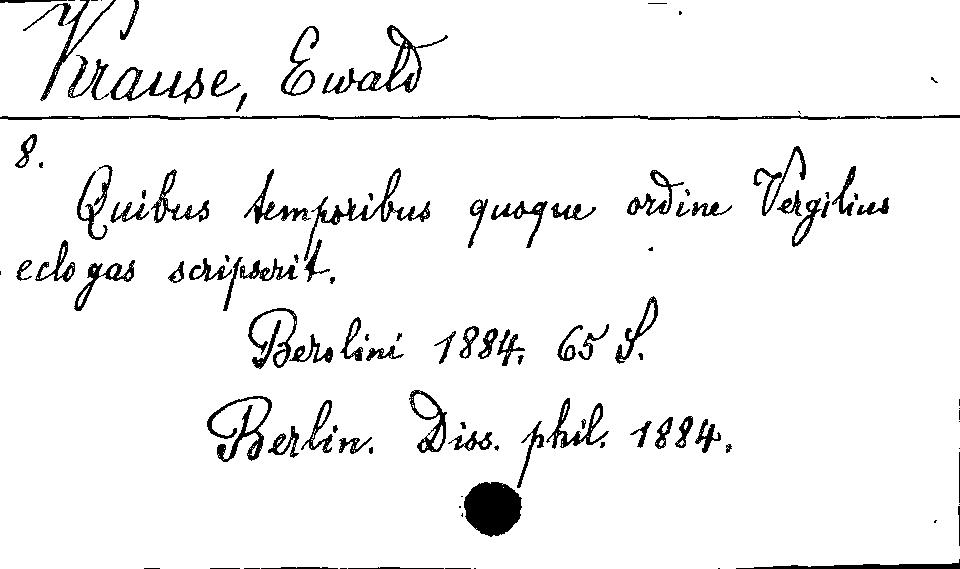 Krause, Ewald
8.
Quibus temporibus quoque ordine Vergilius
eclogas scripserit.
Berolini 1884. 65 S.
Berlin. Diss. phil. 1884.